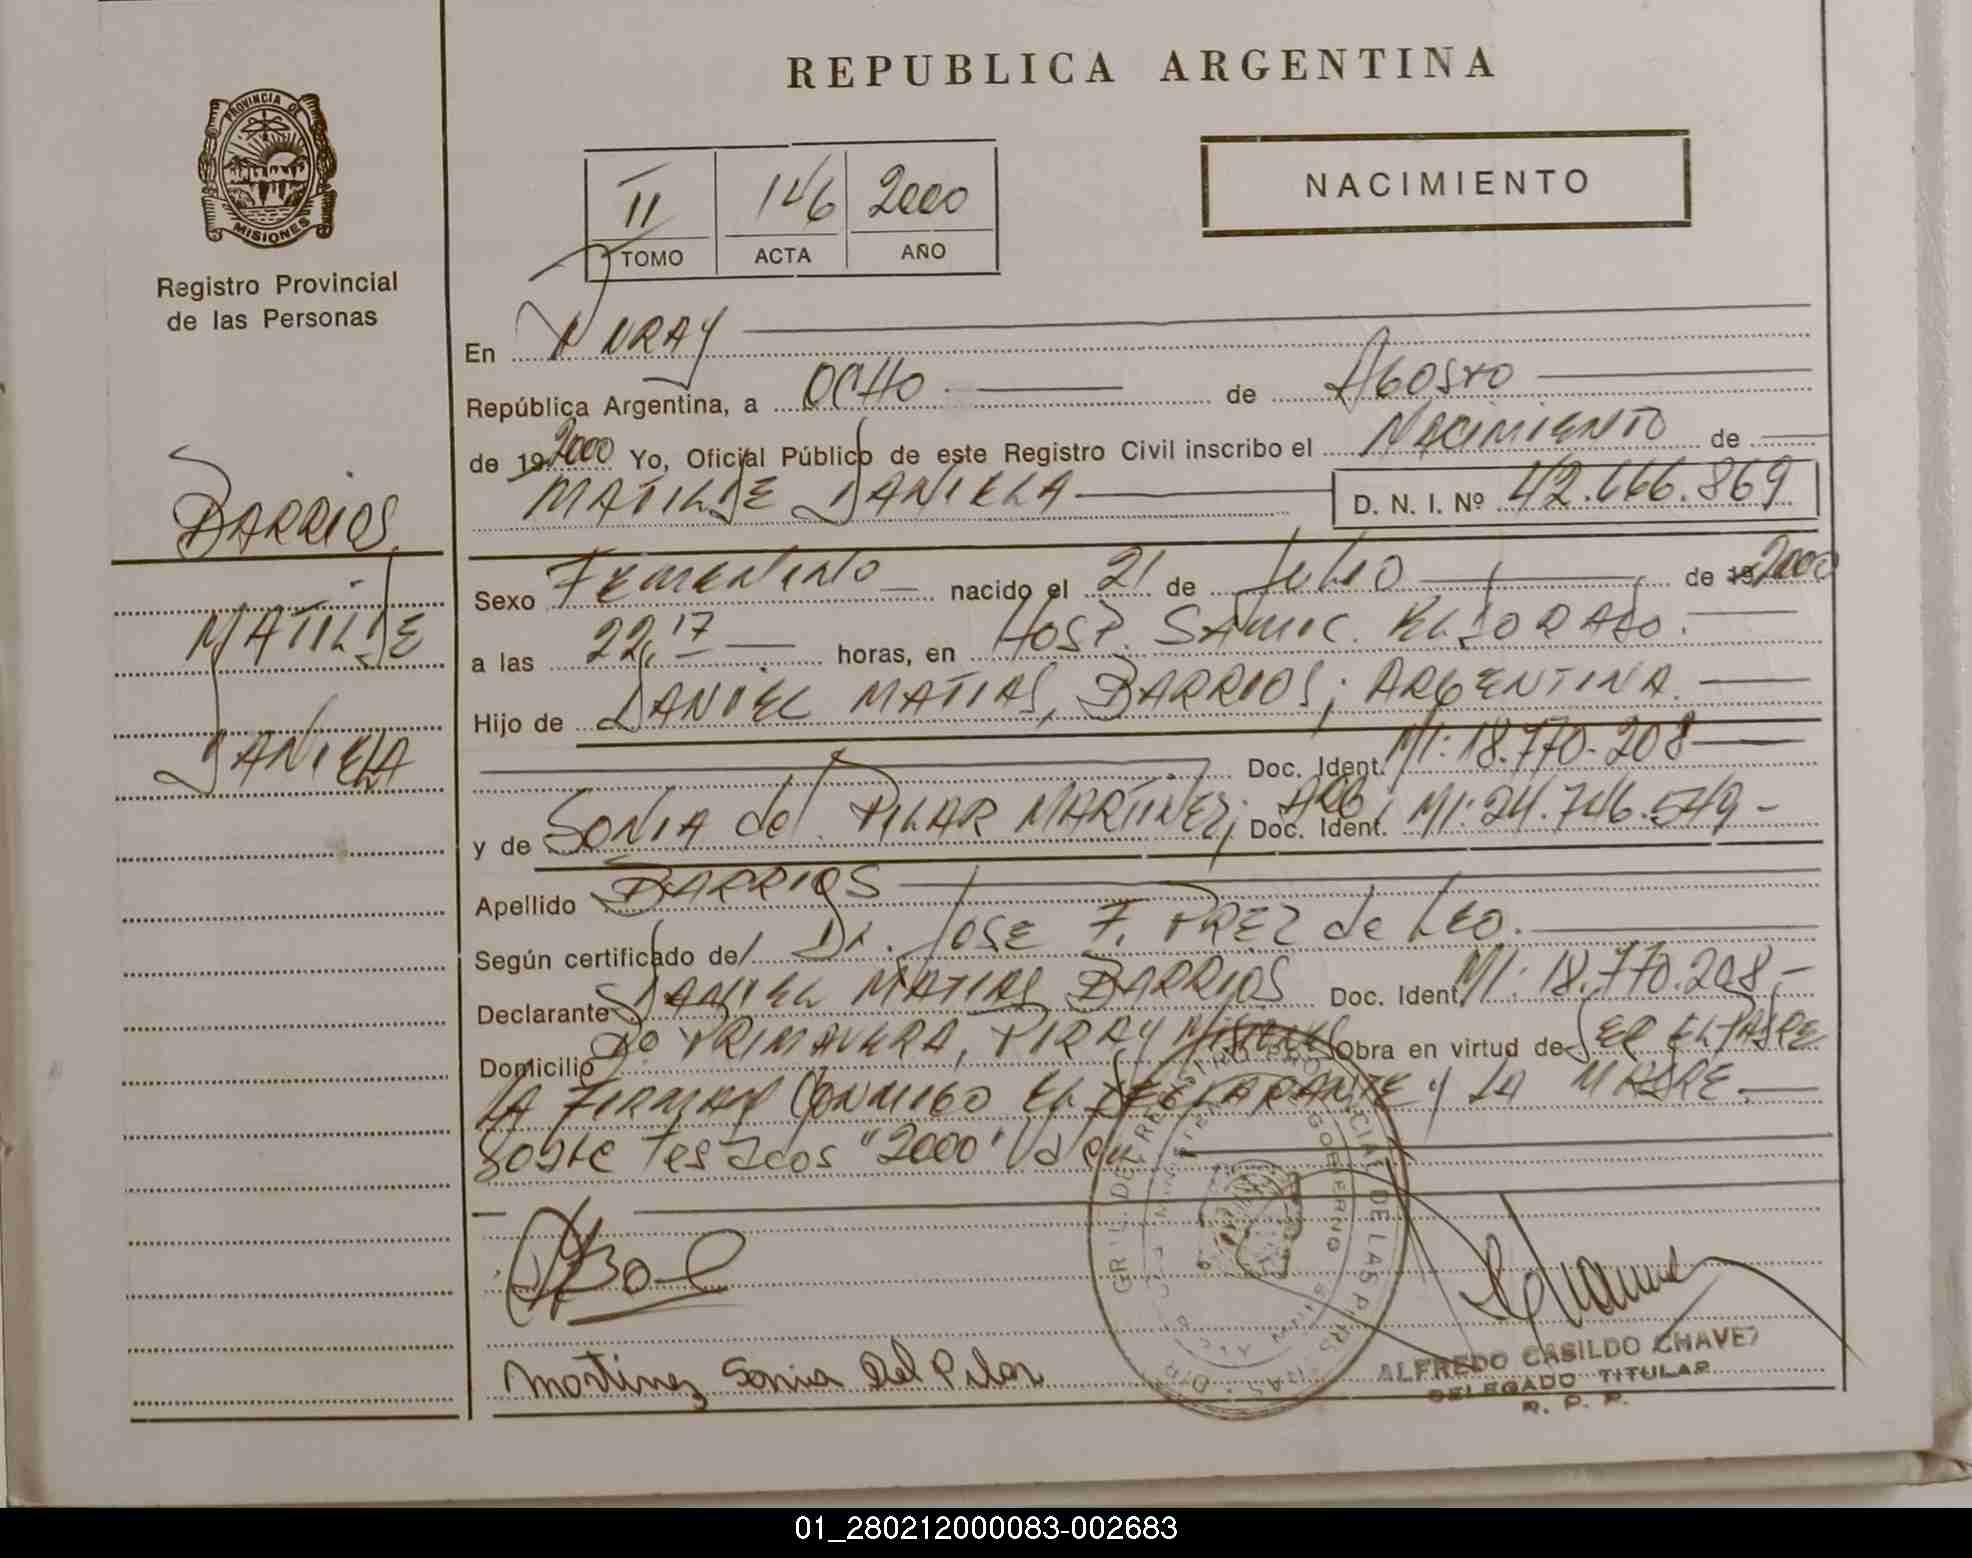 REPUBLICA ARGENTINA
PROVINCIA DE
MISIONES
Registro Provincial
de las Personas
II 146 2000
TOMO ACTA AÑO
NACIMIENTO
En
República Argentina, a OCHO de AGOSTO
de 19 2000 Yo, Oficial Público de este Registro Civil inscribo el NACIMIENTO de
MATILDE DANIELA D. N. I. Nº 42.666.869
BARRIOS
MATILDE
DANIELA
Sexo FEMENINO nacido el 21 de Julio de 19 2000
a las 22,17 horas, en HOSP. SAMIC. ELDORADO.
Hijo de DANIEL MATIAS, BARRIOS; ARGENTINA.
Doc. Ident. MI: 18.770.208
y de SONIA del PILAR MARTINEZ; ARG; Doc. Ident. MI: 24.746.549-
Apellido BARRIOS
Según certificado de/ Dr. JOSE F. PREZ de LEO.
Declarante DANIEL MATIAS BARRIOS Doc. Ident. MI: 18.770.208-
Domicilio Bo PRIMAVERA, PIRAY MISIONES Obra en virtud de SER EL PADRE
LA FIRMAN CONMIGO EL DECLARANTE y LA MADRE.
Sobre Testados "2000" Vale
Martinez Sonia Del Pilar
ALFREDO CASILDO CHAVEZ
DELEGADO TITULAR
R. P. P.
01_280212000083-002683